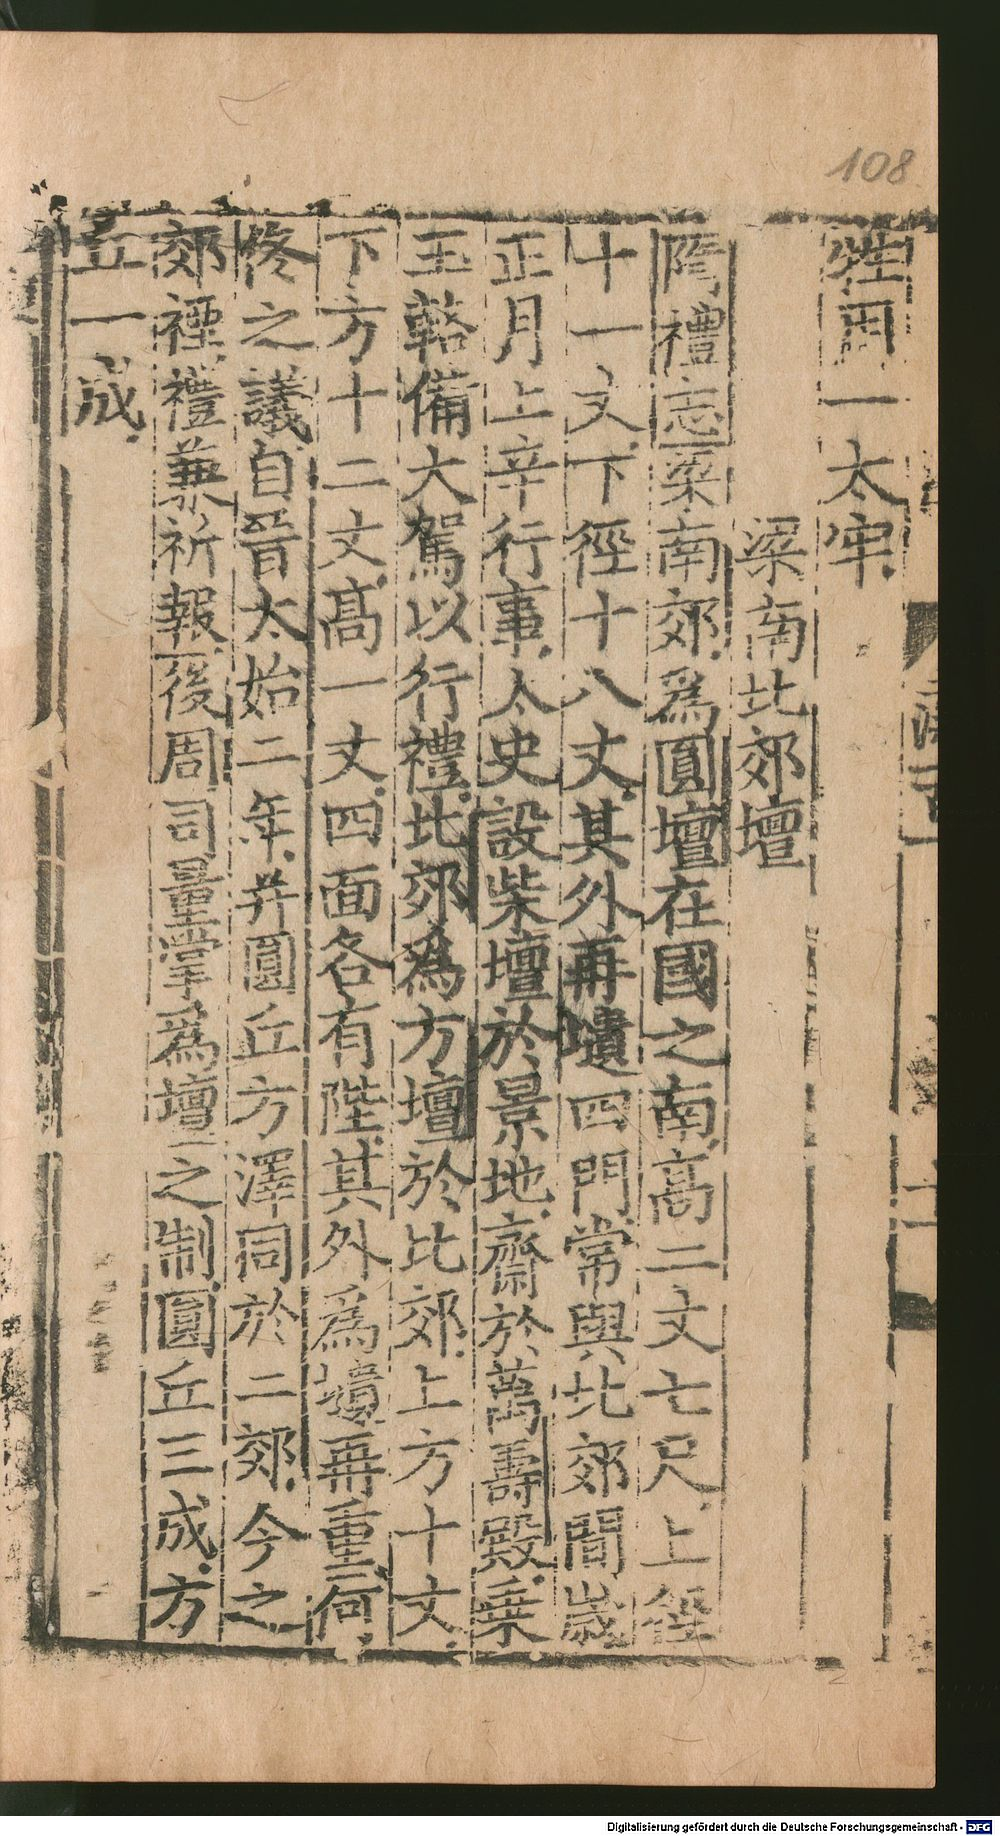 108
牲用一太牢
梁南北郊壇
隋禮志梁南郊爲圓壇在國之南高二丈七尺上徑
十一丈下徑十八丈其外再壝四門常與北郊間歲
正月上辛行事太史設柴壇於景地齋於萬壽殿乗
玉輅備大駕以行禮北郊爲方壇於北郊上方十丈
下方十二丈髙一丈四面各有陛其外爲壝再重何
佟之議自晉太始二年并圓丘方澤同於二郊今之
郊禋禮兼祈報後周司量掌爲壇之制圓丘三成方
丘一成
Digitalisierung gefördert durch die Deutsche Forschungsgemeinschaft - DFG